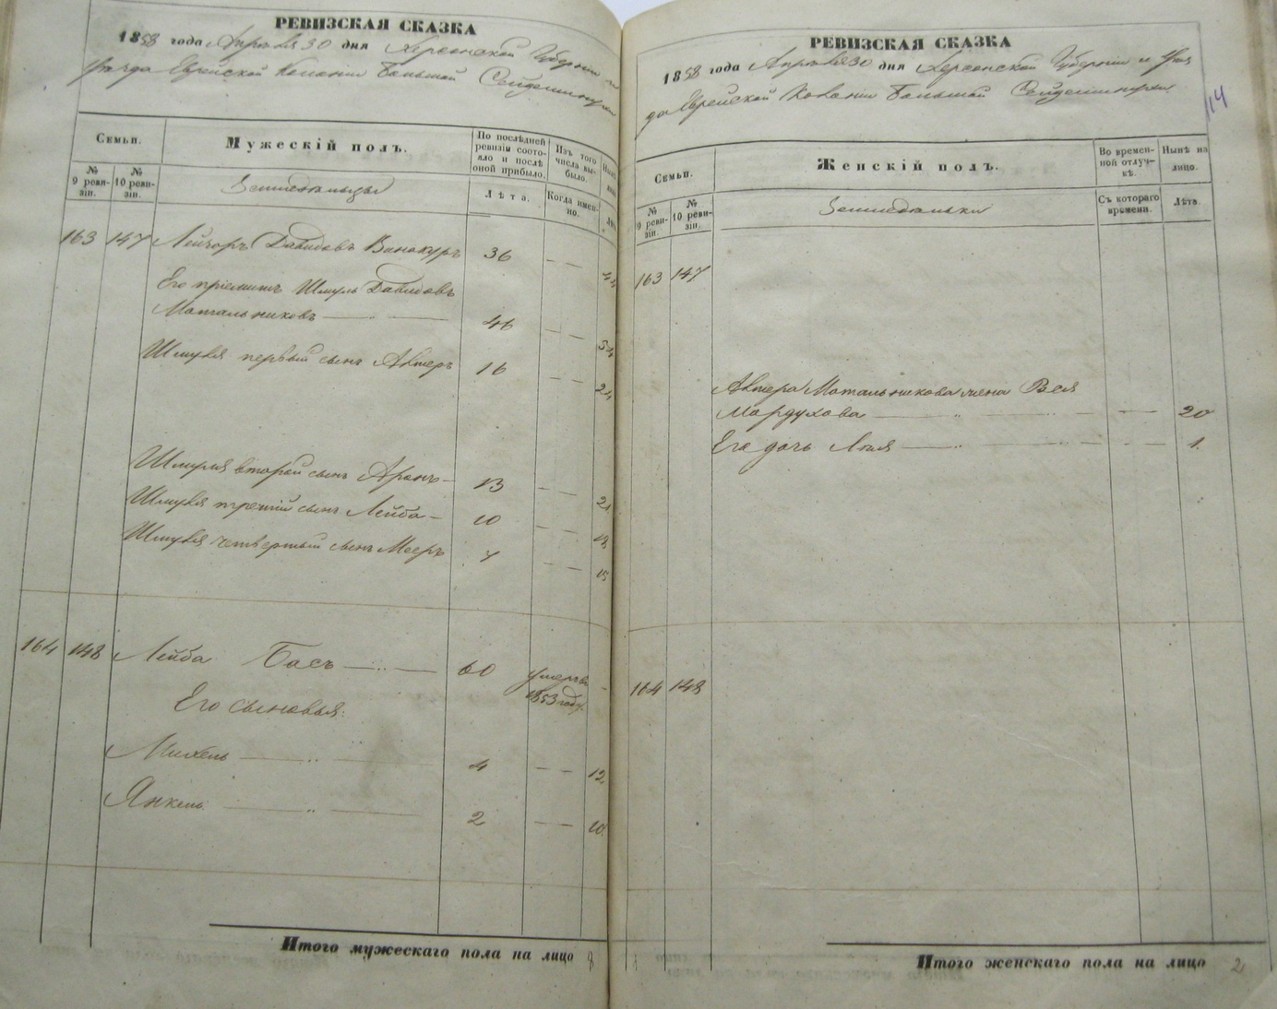 РЕВИЗСКАЯ СКАЗКА
1858 года Апрѣля 30 дня Херсонской Губернiи и
уѣзда Еврейской Колонiи Большой Сейдеминухи
Семьи.
Мужескій полъ.
По послѣдней ревизіи состояло и послѣ оной прибыло.
Изъ того числа выбыло.
№ 9 ревизіи.
№ 10 ревизіи.
Земледѣльцы
Лѣта.
Когда именно.
163 147 Лейзоръ Давидовъ Винокуръ 36 — —
Его прiемышъ Шмуль Давидовъ
Мотальниковъ — 46 — — 54
Шмуля первый сынъ Авнеръ 16 — — 24
Шмуля второй сынъ Аронъ — 13 — — 21
Шмуля третiй сынъ Лейба — 10 — — 18
Шмуля четвертый сынъ Мееръ 7 — — 15
164 148 Лейба Басъ — 60 умеръ въ
1853 году
Его сыновья:
Михель — 4 — — 12
Янкель — 2 — — 10
Итого мужескаго пола на лицо
РЕВИЗСКАЯ СКАЗКА
1858 года Апрѣля 30 дня Херсонской Губернiи и уѣз
да Еврейской Колонiи Большой Сейдеминухи
114
Семьи.
Женскій полъ.
Во временной отлучкѣ.
Нынѣ на лицо.
№ 9 ревизіи.
№ 10 ревизіи.
Земледѣльки
Съ котораго времени.
Лѣта.
163 147
Авнера Мотальникова жена Вея
Мордухова — — — 20
Его дочь Лея — — — 1
164 148
Итого женскаго пола на лицо 2